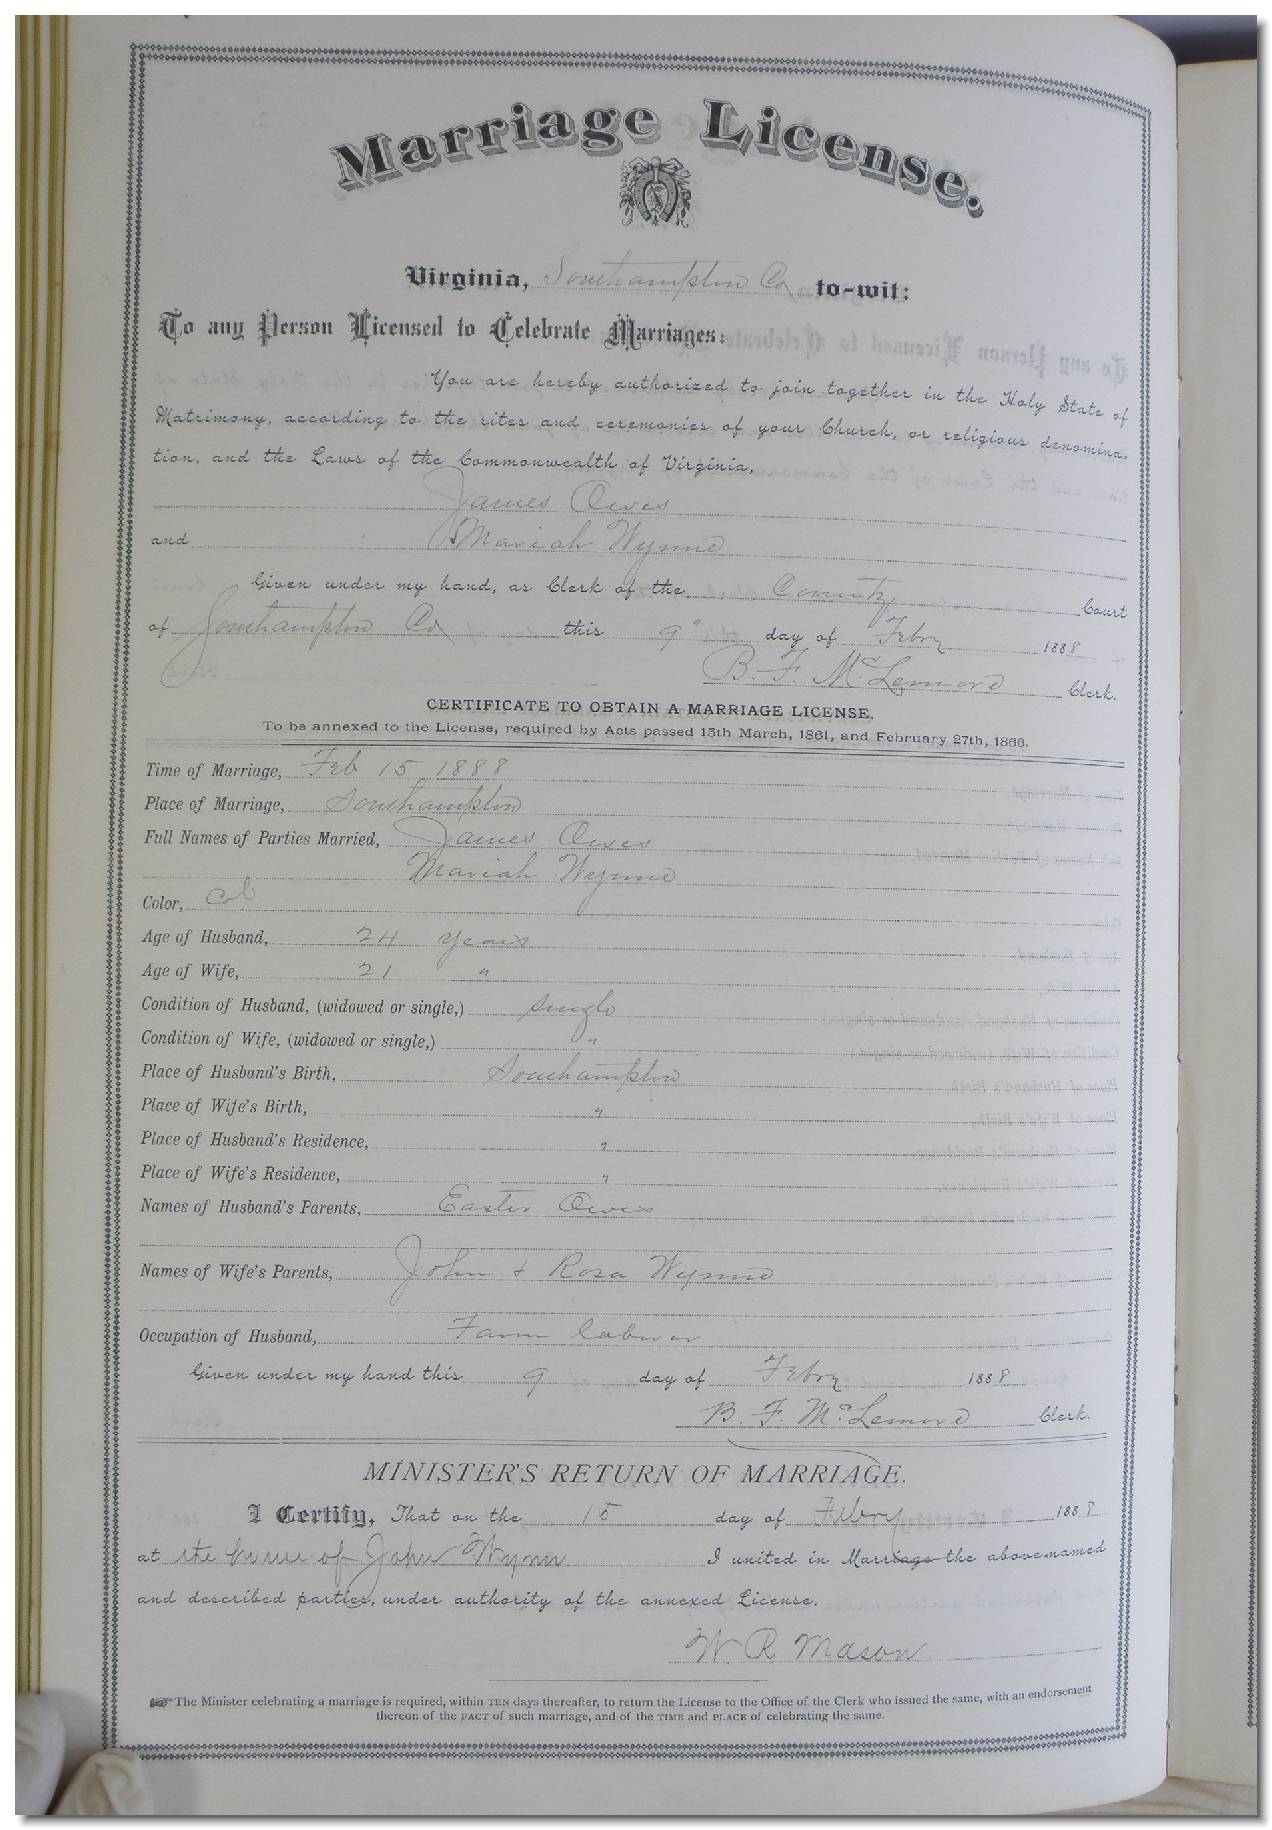 Marriage License.
Virginia, Southampton Co to-wit:
To any Person Licensed to Celebrate Marriages:
You are hereby authorized to join together in the Holy State of
Matrimony, according to the rites and ceremonies of your Church, or religious denomina-
tion, and the Laws of the Commonwealth of Virginia,
James
and Mariah Wynne
Given under my hand, as Clerk of the County Court
of Southampton Co this 9" day of Febry 1888
B. F. McLemore Clerk.
CERTIFICATE TO OBTAIN A MARRIAGE LICENSE.
To be annexed to the License, required by Acts passed 15th March, 1861, and February 27th, 1866.
Time of Marriage, Feb 15 1888
Place of Marriage, Southampton
Full Names of Parties Married, James
Mariah Wynne
Color, Col
Age of Husband, 24 years
Age of Wife, 21 "
Condition of Husband, (widowed or single,) single
Condition of Wife, (widowed or single,) "
Place of Husband's Birth, Southampton
Place of Wife's Birth, "
Place of Husband's Residence, "
Place of Wife's Residence, "
Names of Husband's Parents, Easter
Names of Wife's Parents, John & Rosa Wynne
Occupation of Husband, Farm laborer
Given under my hand this 9 day of Febry 1888
B. F. McLemore Clerk.
MINISTER'S RETURN OF MARRIAGE.
I Certify, That on the 15 day of Febry 1888
at the home of John Wynn I united in Marriage the above-named
and described parties, under authority of the annexed License.
W. R. Mason
The Minister celebrating a marriage is required, within TEN days thereafter, to return the License to the Office of the Clerk who issued the same, with an endorsement
thereon of the FACT of such marriage, and of the TIME and PLACE of celebrating the same.